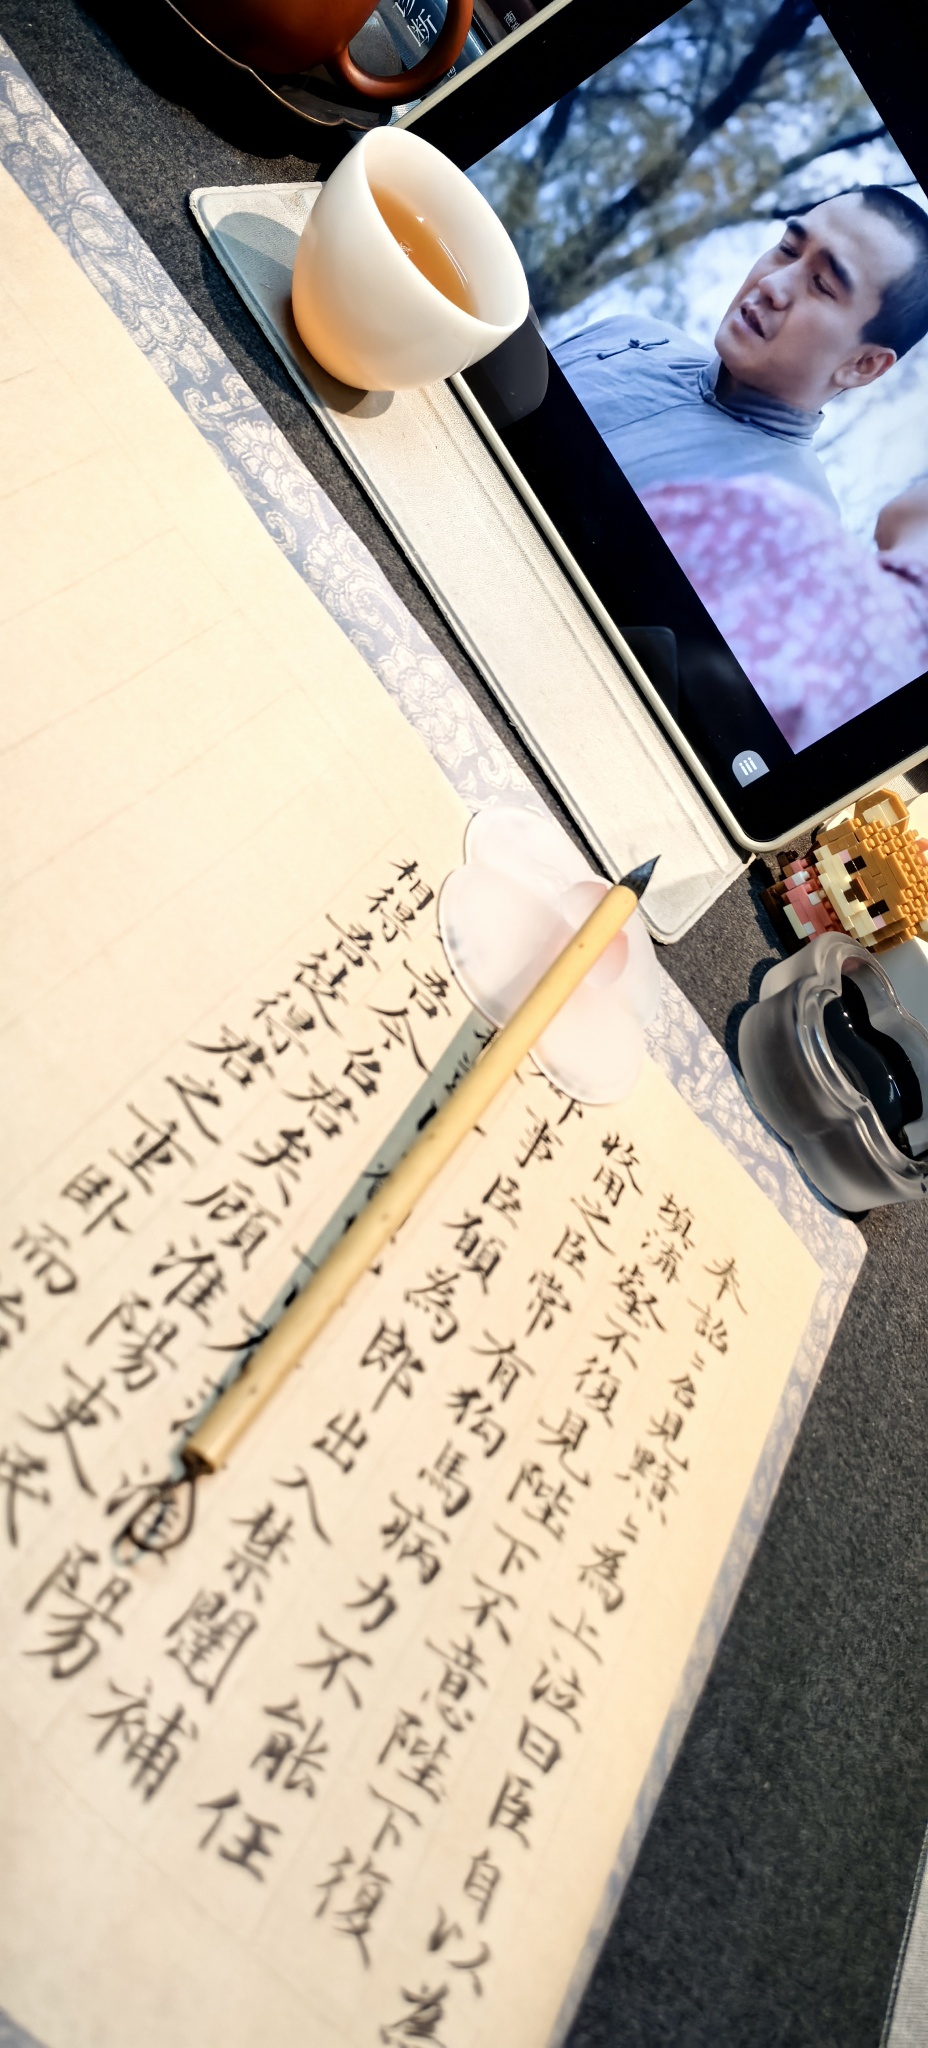 奉詔〻召見黯〻為上泣曰臣自以為
填溝壑不復見陛下不意陛下復
收用之臣常有狗馬病力不能任
事臣願為郎出入禁闥補
淮陽
吾今召君矣顧淮陽吏民
相得吾徒得君之重卧而治